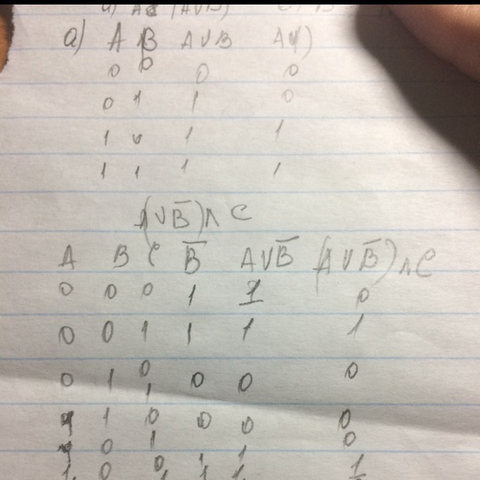 a) A B A∨B
0 0 0 0
0 1 1 0
1 0 1 1
1 1 1 1
(A∨B̅)∧C
A B C B̅ A∨B̅ (A∨B̅)∧C
0 0 0 1 1 0
0 0 1 1 1 1
0 1 0 0 0 0
1
1 0 0 0 0
0 1 1 0
1 0 0 1 1 1